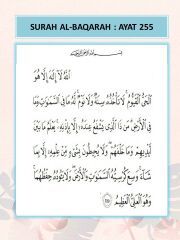 SURAH AL-BAQARAH : AYAT 255
بِسْمِ اللَّهِ الرَّحْمَٰنِ الرَّحِيمِ
اللَّهُ لَا إِلَٰهَ إِلَّا هُوَ
الْحَيُّ الْقَيُّومُ لَا تَأْخُذُهُ سِنَةٌ وَلَا نَوْمٌ لَّهُ مَا فِي السَّمَاوَاتِ وَمَا
فِي الْأَرْضِ مَن ذَا الَّذِي يَشْفَعُ عِندَهُ إِلَّا بِإِذْنِهِ يَعْلَمُ مَا بَيْنَ
أَيْدِيهِمْ وَمَا خَلْفَهُمْ وَلَا يُحِيطُونَ بِشَيْءٍ مِّنْ عِلْمِهِ إِلَّا بِمَا
شَاءَ وَسِعَ كُرْسِيُّهُ السَّمَاوَاتِ وَالْأَرْضَ وَلَا يَئُودُهُ حِفْظُهُمَا
وَهُوَ الْعَلِيُّ الْعَظِيمُ ٢٥٥